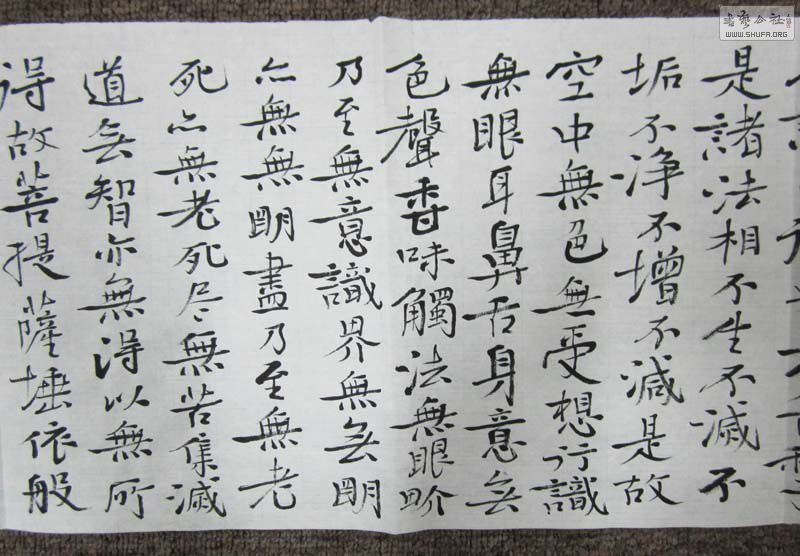 書藝公社
WWW.SHUFA.ORG
是諸法相不生不滅不
垢不淨不增不減是故
空中無色無受想行識
無眼耳鼻舌身意無
色聲香味觸法無眼界
乃至無意識界無無明
亦無無明盡乃至無老
死亦無老死尽無苦集滅
道無智亦無得以無所
得故菩提薩埵依般